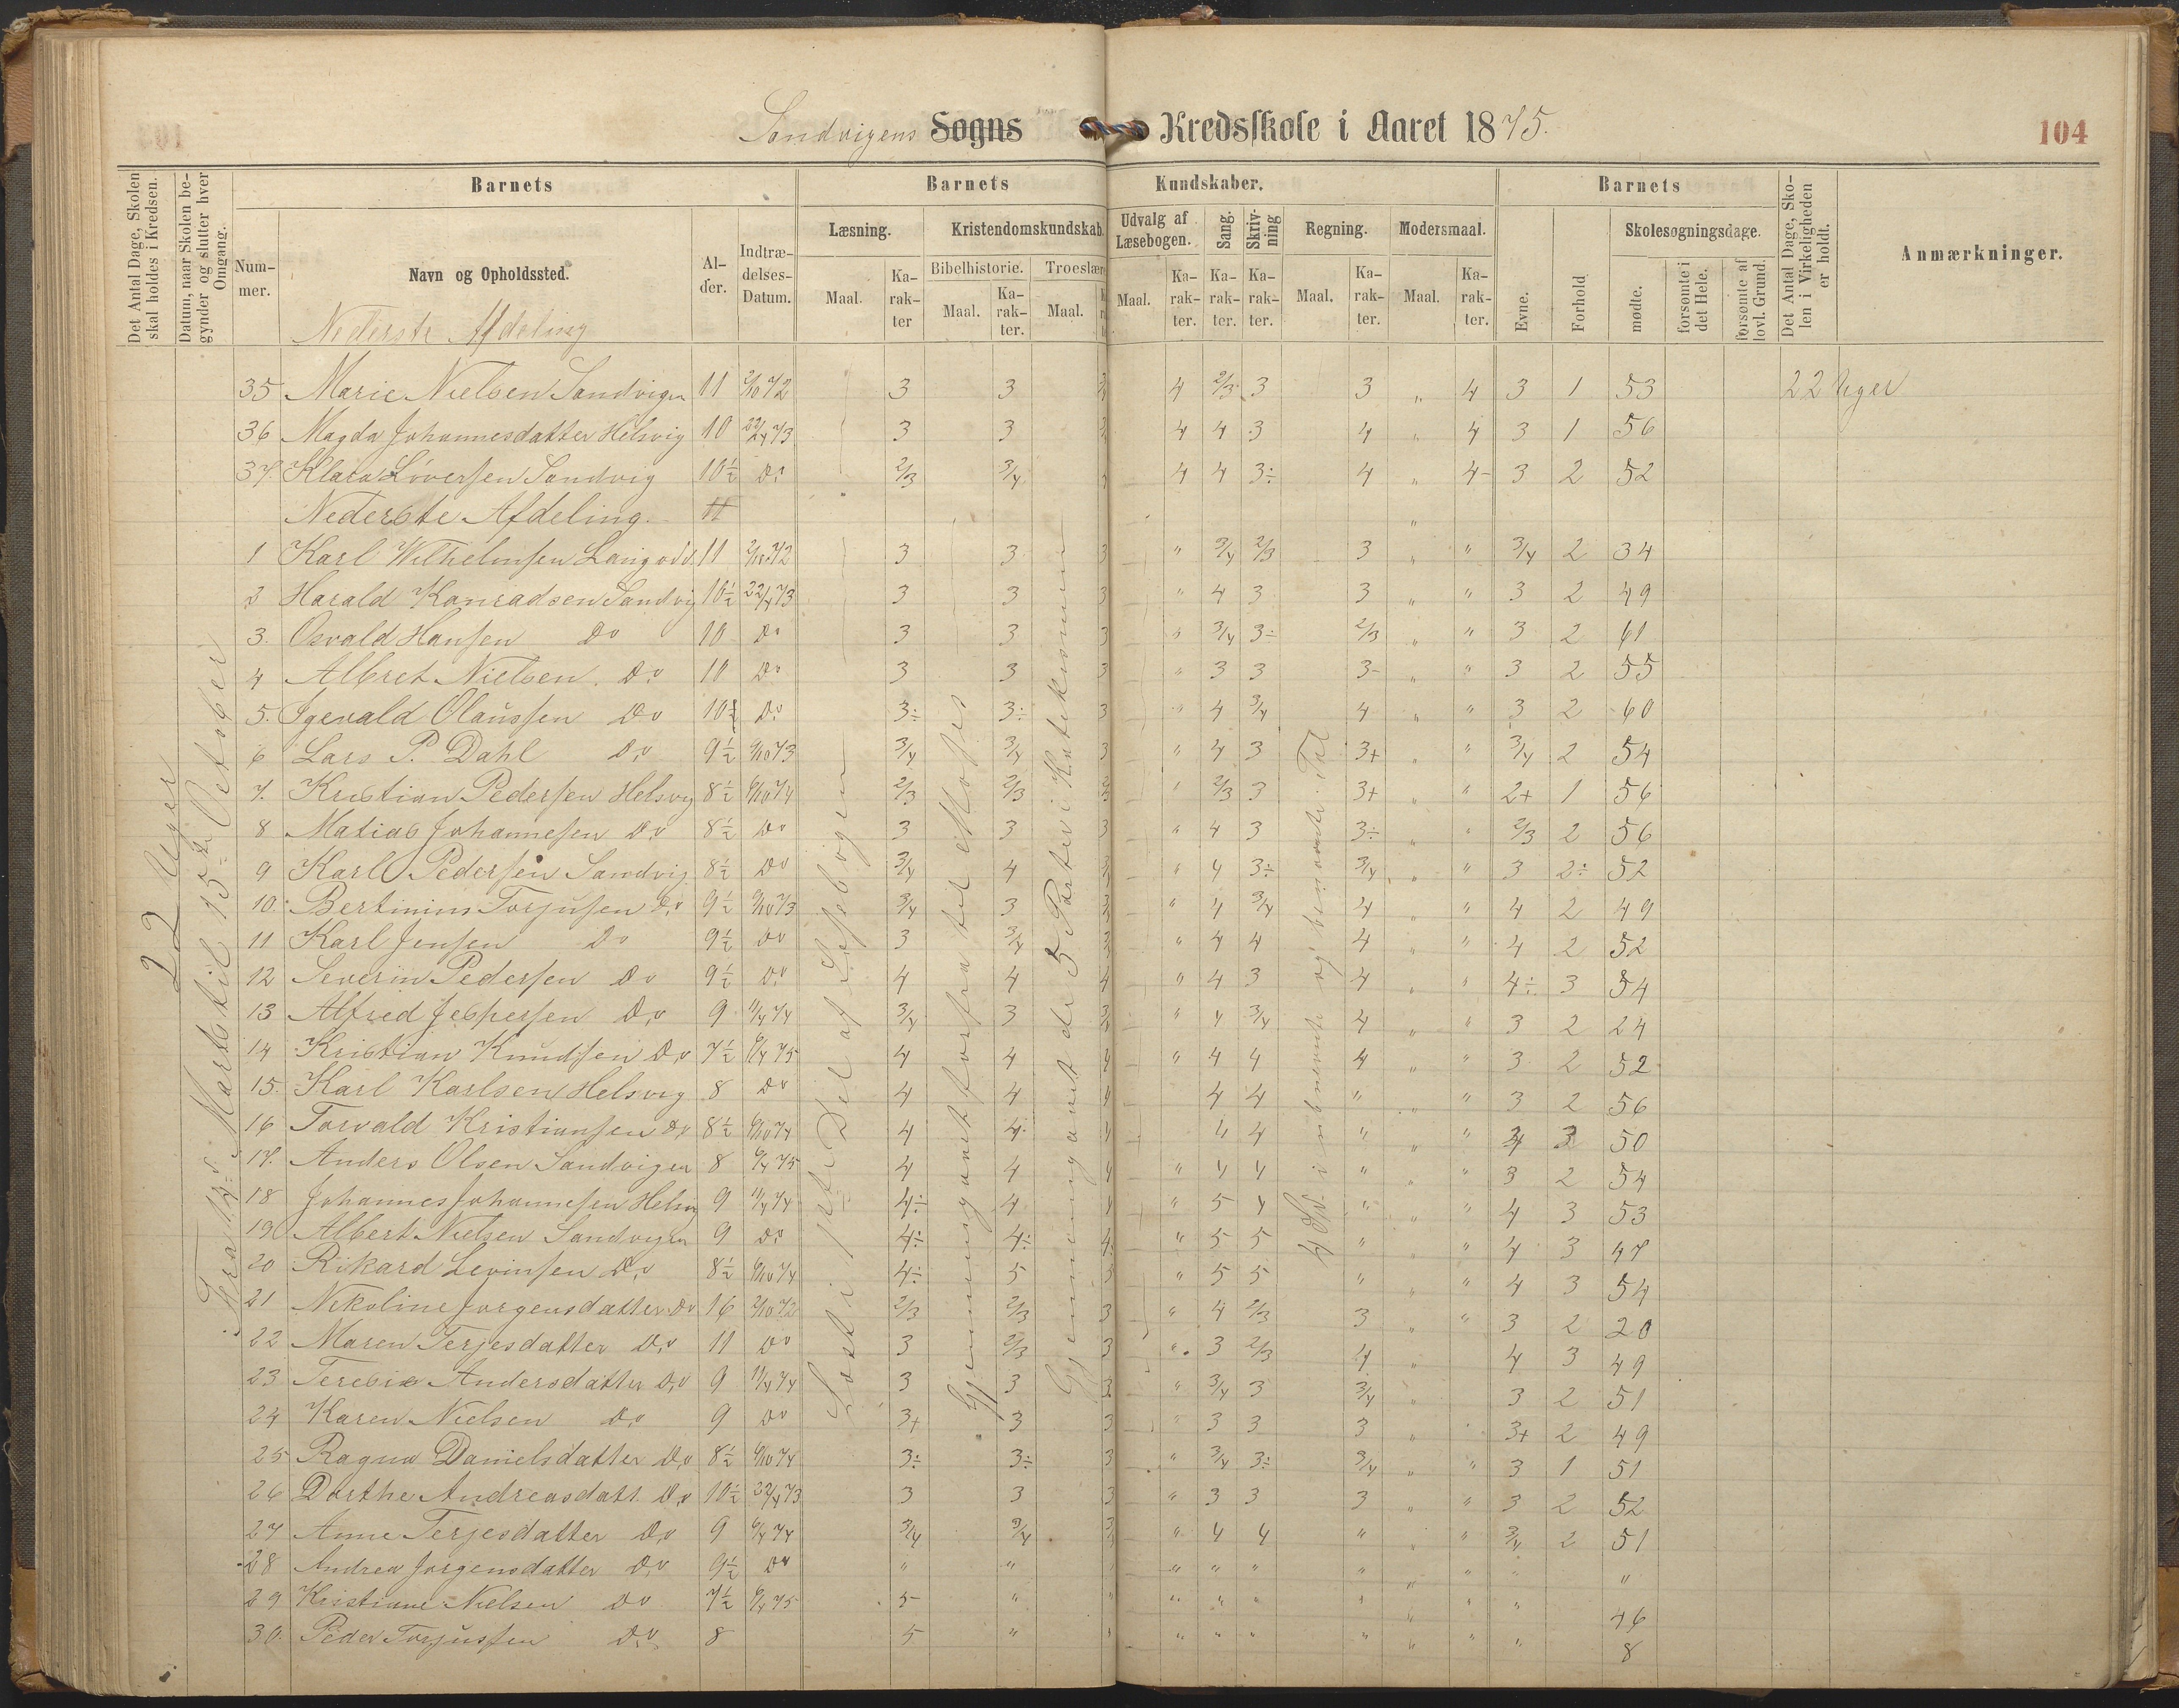 Sandvigens Sogns Kredsskole i Aaret 1875.
104
Det Antal Dage, Skolen skal holdes i Kredsen.
Datum, naar Skolen begynder og slutter hver Omgang.
Barnets
Nummer.
Navn og Opholdssted.
Alder.
Indtrædelses-Datum.
Barnets Kundskaber.
Læsning.
Kristendomskundskab.
Bibelhistorie.
Troeslære
Udvalg af Læsebogen.
Sang.
Skrivning
Regning.
Modersmaal.
Maal.
Karakter
Barnets
Evne.
Forhold
Skolesøgningsdage.
mødte.
forsømte i det Hele.
forsømte af lovl. Grund.
Det Antal Dage, Skolen i Virkeligheden er holdt.
Anmærkninger.
Nederste Afdeling
35 Marie Nielsen Sandvigen 11 2/10 72 3 3 4 2/3 3 3 " 4 3 1 53 22 Uger
36 Magda Johannesdatter Helsvig 10 22/4 73 3 3 4 4 3 4 " 4 3 1 56
37. Klara Løversen Sandvig 10½ Do 2/3 3/4 4 4 3÷ 4 " 4- 3 2 52
Nederste Afdeling 11
1 Karl Wilhelmsen Langodd 11 2/10 72 3 3 3 " 3/4 2/3 3 " " 3/4 2 34
2 Harald Konradsen Sandvig 10½ 22/4 73 3 3 3 " 4 3 3 " " 3 2 49
3. Osvald Hansen Do 10 Do 3 3 3 " 3/4 3÷ 2/3 " " 3 2 61
4 Albret Nielsen Do 10 Do 3 3 3 " 3 3 3- " " 3 2 55
5. Igevald Olaussen Do 10½ Do 3÷ 3÷ 3 " 4 3/4 4 " " 3 2 60
6 Lars P. Dahl Do 9½ 6/10 73 3/4 3/4 3 " 4 3 3+ " " 3/4 2 54
7. Kristian Pedersen Helsvig 8½ 6/10 74 2/3 2/3 2/3 " 2/3 3 3+ " " 2+ 1 56
8 Matias Johannesen Do 8½ Do 3 3 3 " 4 3 3÷ " " 2/3 2 56
9 Karl Pedersen Sandvig 8½ Do 3/4 4 3/4 " 4 3÷ 3/4 " " 3 2÷ 52
10. Bertinius Torjusen Do 9½ 6/10 73 3/4 3 3/4 " 4 3/4 4 " " 4 2 49
11 Karl Jensen Do 9½ Do 3 3/4 3/4 " 4 4 4 " " 4 2 52
12 Severin Pedersen Do 9½ Do 4 4 4 " 4 3 4 " " 4÷ 3 54
13 Alfred Jespersen Do 9 11/4 74 3/4 3 3/4 " 4 3/4 4 " " 3 2 24
14 Kristian Knudsen Do 7½ 6/4 75 4 4 4 " 4 4 4 " " 3 2 52
15. Karl Karlsen Helsvig 8 Do 4 4 4 4 4 " " " 3 2 56
16 Torvald Kristiansen Do 8½ 6/10 74 4 4 4 4 4 " " " 4 3 50
17. Anders Olsen Sandvigen 8 6/4 75 4 4 4 " 4 4 " " " 3 2 54
18 Johannes Johannesen Helsvig 9 11/4 74 4÷ 4 4 " 5 4 " " " 4 3 53
19 Albert Nielsen Sandvigen 9 Do 4÷ 4÷ 4÷ " 5 5 " " " 4 3 47
20 Rikard Levinsen Do 8½ 6/10 74 4÷ 5 " 5 5 " " " 4 3 54
21 Nikoline Jorgensdatter Do 16 2/10 72 2/3 2/3 3 " 4 2/3 3 " " 3 2 20
22 Maren Terjesdatter Do 11 Do 3 2/3 3 " 3 2/3 4 " 4 3 49
23 Teresie Andersdatter Do 9 11/4 74 3 3 3 " 3/4 3 3/4 " 3 2 51
24 Karen Nielsen Do 9 Do 3+ 3 3 " 3 3 3 " 3+ 2 49
25 Ragna Danielsdatter Do 8½ 6/10 74 3÷ 3÷ 3 " 3/4 3÷ 3/4 " " 3 1 51
26 Dorthe Andreasdatt. Do 10½ 22/4 73 3 3 3 " 3 3 3 " " 3 2 52
27 Anne Terjesdatter Do 9 6/4 74 3/4 3/4 " 4 4 " " " 3/4 2 51
28 Andrea Jorgensdatter Do 9½ Do " " " " " " " " " "
29 Kristiane Nielsen Do 7½ 6/4 75 5- " " " " " " " " 46
30. Peder Torjussen Do 8 5 " " " " " " " " 8
22 Uger
Fra 15de Marts til 15de October
Læst i 1ste Del af Læsebogen
Gjennemgaaet forfra til Moses
Gjennemgaaet de 5 Parter i Katekismen
4 Sp. i ubenævnte og benævnte Tal